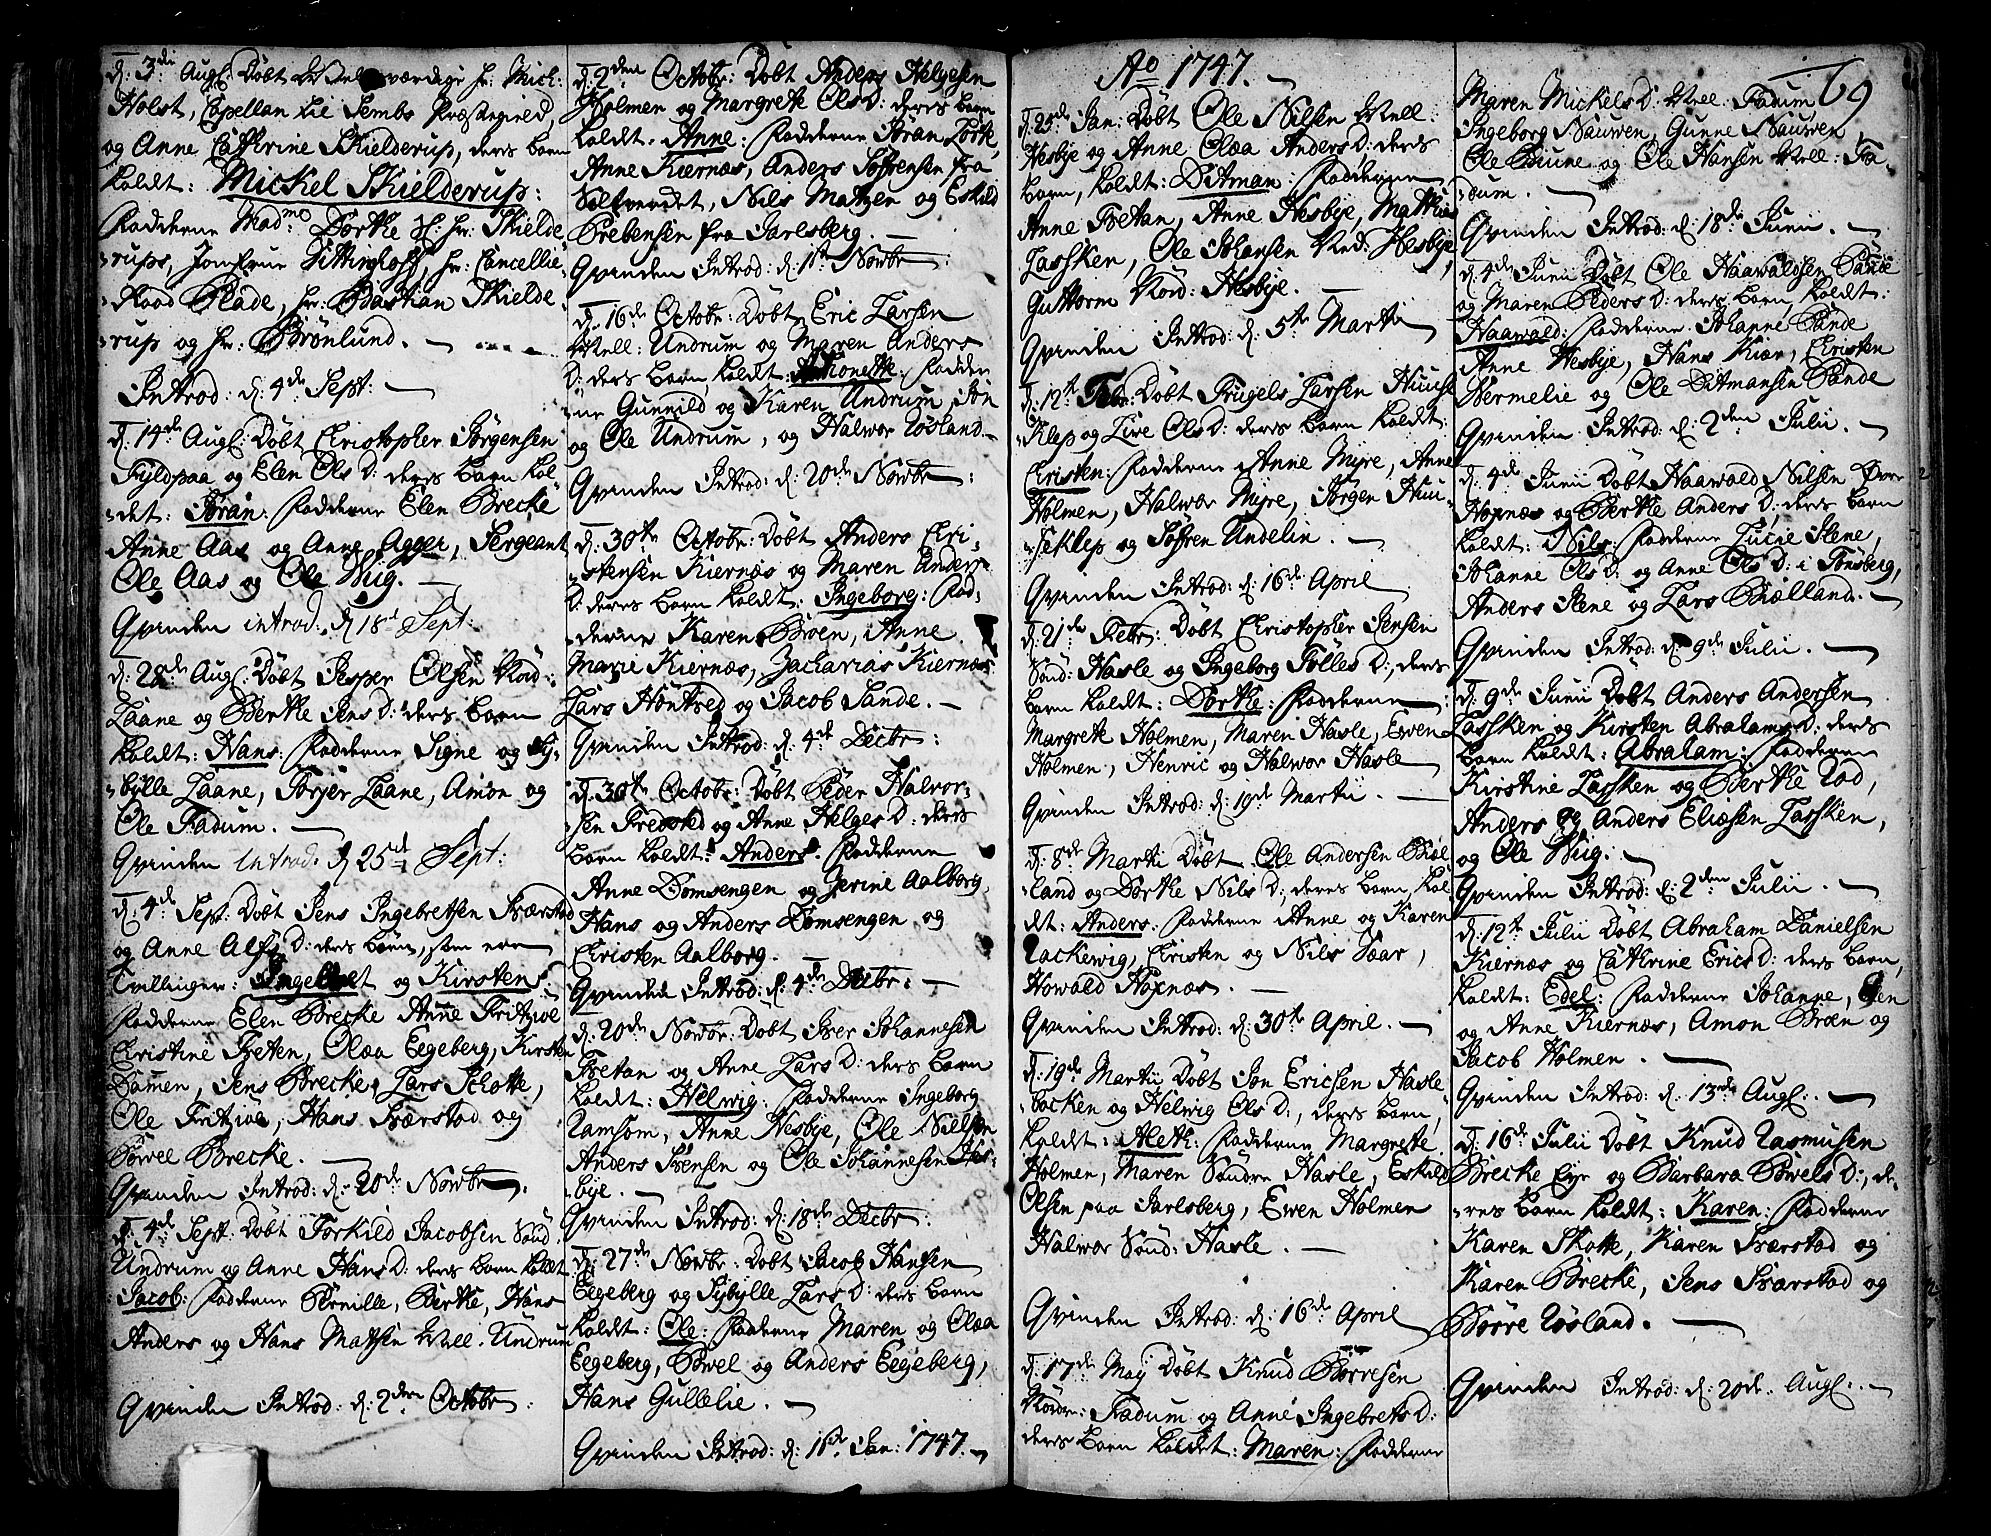 d: 3die Aug: Døbt Velærværdige hr: Mich:
Holst, Capellan til Sembs Præstegield,
og Anne Cathrine Skielderup, deres barn
kaldt: Mickel Skielderup:
Fadderne Mad:me Dorthe Sl: hr: Skielde
rups, Jomfrue Vittinghoff, hr: Cancellie
Raad Blade, hr: Bastian Skielde
rup og hr: Brønlund. —
Introd: d: 4de Sept: —
d: 14de Aug: Døbt Christopher Jørgensen
Fyldpaa og Elen Ols D: deres barn kal-
det: Jøran: Fadderne Elen Brecke
Anne Aas og Anne Agger, Sergeant
Ole Aas og Ole Wiig. —
Qvinden introd: d 18d Sept:
d: 28de Aug: Døbt Jesper Olsen Nord:
Laane og Berthe Jens D: deres barn
kaldt: Hans: Fadderne Signe og Sy-
bylle Laane, Torjer Laane, Amon og
Ole Fadum. —
Qvinden Introd. d 25d Sept:
d: 4de Sept: Døbt Jens Ingebretsen Sværstad
og Anne Alfs D: deres børn, som ere
tvillinger: Ingebret og Kirsten:
Fadderne Elen Brecke Anne Fritzøe
Christine Freten, Olaa Eegeberg, Kirsten
Dammen, Jens Brecke, Lars Schotte,
Ole Fritzøe, Hans Sværstad og
Børvel Brecke. —
Qvinden Introd: d: 20de Novbr:
d: 4de Sept: Døbt Torkild Jacobsen Sønd:
Undrum og Anne Hans D: deres barn kaldt
Jacob: Fadderne Pernille, Berthe, Hans
Anders og Hans Matsen Vell. Undrum
Qvinden Introd: d: 2den Octobr:
d: 2den Octobr: Døbt Anders Helgesen
Holmen og Margrete Ols D: deres barn
kaldt. Anne: Fadderne Jøran Torke,
Anne Kiernæs, Anders Søfrensen fra
Saltverdet, Nils Matzen og Eskild
Prebensen fra Jarlsberg. —
Qvinden Introd: d: 11te Novbr:
d: 16de Octobr: Døbt Eric Larsen
Vell: Undrum og Maren Anders
D: deres barn kaldt. Anthonette: Fadder
ne Gunnild og Karen Undrum, Jon
og Ole Undrum, og Halwor Røsland —
Qvinden Introd: d: 20de Novbr:
d: 30te Octobr: Døbt Anders Chri-
stensen Kiernæs og Maren Anders
D: deres barn kaldt: Ingeborg: Fad-
derne Karen Broen, Anne
Marie Kiernæs, Zacharias Kiernæs
Lars Hontred og Jacob Sande. —
Qvinden Introd: d: 4de Decbr:
d: 30te Octobr: Døbt Peder Halvor-
sen Fredsted og Anne Helges D: deres
barn kaldt: Anders: Fadderne
Anne Domsengen og Jerine Aalborg,
Hans og Anders Domsengen og
Christen Aalborg. —
Qvinden Introd: d: 4de Decbr: —
d: 20de Novbr: Døbt Iver Johannesen
Fretan og Anne Lars D: deres barn
kaldt: Helwig: Fadderne Ingeborg
Ramsom, Anne Hesbye, Ole Nielsen
Anders Svensen og Ole Johannesen Hes-
bye. —
Qvinden Introd: d: 18de Decbr:
d: 27de Novbr: Døbt Jacob Hansen
Eegeberg og Sybylle Lars D: deres barn
kaldt: Ole: Fadderne Maren og Olaa
Eegeberg, Børvel og Anders Eegeberg,
Hans Gullelie. —
Qvinden Introd: d: 11te Jan: 1747. —
Ao 1747. —
d: 25de Jan: Døbt Ole Nilsen Vell:
Hesbye og Anne Olaa Anders D: deres
barn, kaldt: Ditman: Fadderne
Anne Fretan, Anne Hesbye, Mathias
Lassken, Ole Johansen Ned: Hesbye,
Guttorm Nord: Hesbye.
Qvinden Introd: d: 5te Martii
d: 12te Febr: Døbt Trugels Larsen Huuse
klep og Live Ols D: deres barn kaldt:
Christen: Fadderne Anne Myre, Anne
Holmen, Halwor Myre, Jørgen Huu-
seklep og Søfren Undelin. —
Qvinden Introd: d: 16de April
d: 21de Febr: Døbt Christopher Jensen
Sønd: Nasle og Ingeborg Tolles D:, deres
barn kaldt: Dorthe: Fadderne
Margrete Holmen, Maren Nasle, Ewen
Holmen, Henric og Halwor Nasle
Qvinden Introd: d: 19de Martii. —
d: 8de Martii Døbt Ole Andersen Biøl-
land og Dorthe Nils D:, deres barn, kal-
dt: Anders. Fadderne Anne og Karen
Rackewig, Christen og Nils Faar,
Howald Hopnæs. —
Qvinden Introd: d: 30te April. —
d: 19de Martii Døbt Jon Ericsen Nasle
backen og Helwig Ols D:, deres barn,
kaldt: Aleth: Fadderne Margrete
Holmen, Maren Søndre Nasle, Eskild
Olsen paa Jarlsberg, Ewen Holmen
Halwor Sønd: Nasle. —
Qvinden Introd: d: 16de April
d: 17de May Døbt Knud Børresen
Nordre: Fadum og Anne Ingebrets D:
deres barn kaldet: Maren: Fadderne
69
Maren Mickels D: Vell: Fadum
Ingeborg Nauwen, Gunne Nauwen
Ole Brune og Ole Hansen Vell: Fa-
dum. —
Qvinden Introd: d: 18de Junii. —
d: 4de Junii Døbt Ole Haawaldsen Sande
og Maren Peders D: deres barn, kaldt:
Haawald: Fadderne Johanne Sande
Anne Hesbye, Hans Kiær, Christen
Vermelie og Ole Ditmansen Sande
Qvinden Introd: d: 2den Julii. —
d: 4de Junii Døbt Haawald Nilsen Øvre
Hopnæs og Berthe Anders D: deres barn
kaldt: Nils: Fadderne Lucie Ilene,
Johanne Ols D: og Anne Ols D: i Tønsberg,
Anders Ilene og Lars Biølland. —
Qvinden Introd: d: 9de Julii. —
d: 9de Junii Døbt Anders Andersen
Lassken og Kirsten Abrahams D: deres
barn kaldt: Abraham: Fadderne
Kirstine Lassken og Berthe Rød,
Anders og Anders Eliæsen Lassken,
og Ole Wiig. —
Qvinden Introd: d: 2den Julii. —
d: 12te Julii Døbt Abraham Danielsen
Kiernæs og Cathrine Erics D: deres barn,
kaldt: Edel: Fadderne Johanne, Elen
og Anne Kiernæs, Amon Broen og
Jacob Holmen. —
Qvinden Introd: d: 13de Aug: —
d: 16de Julii Døbt Knud Rasmusen
Brecke Eye og Barbara Børvels D:, de-
res barn kaldt: Karen: Fadderne
Karen Skotte, Karen Sværstad og
Karen Brecke, Jens Sværstad og
Børre Røsland. —
Qvinden Introd: d: 20de. Aug: —